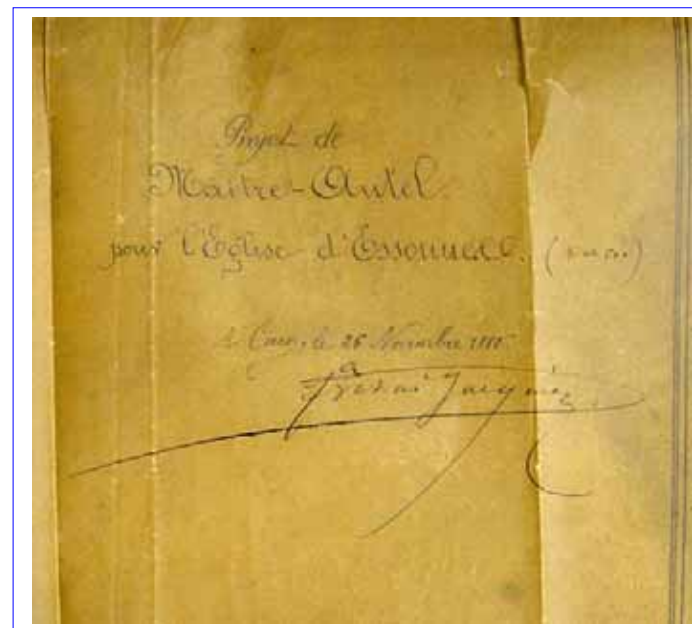 Projet de
Maître-Autel.
pour l'Eglise d'Essonnes.
Caen, le 26 Novembre
Jacquier